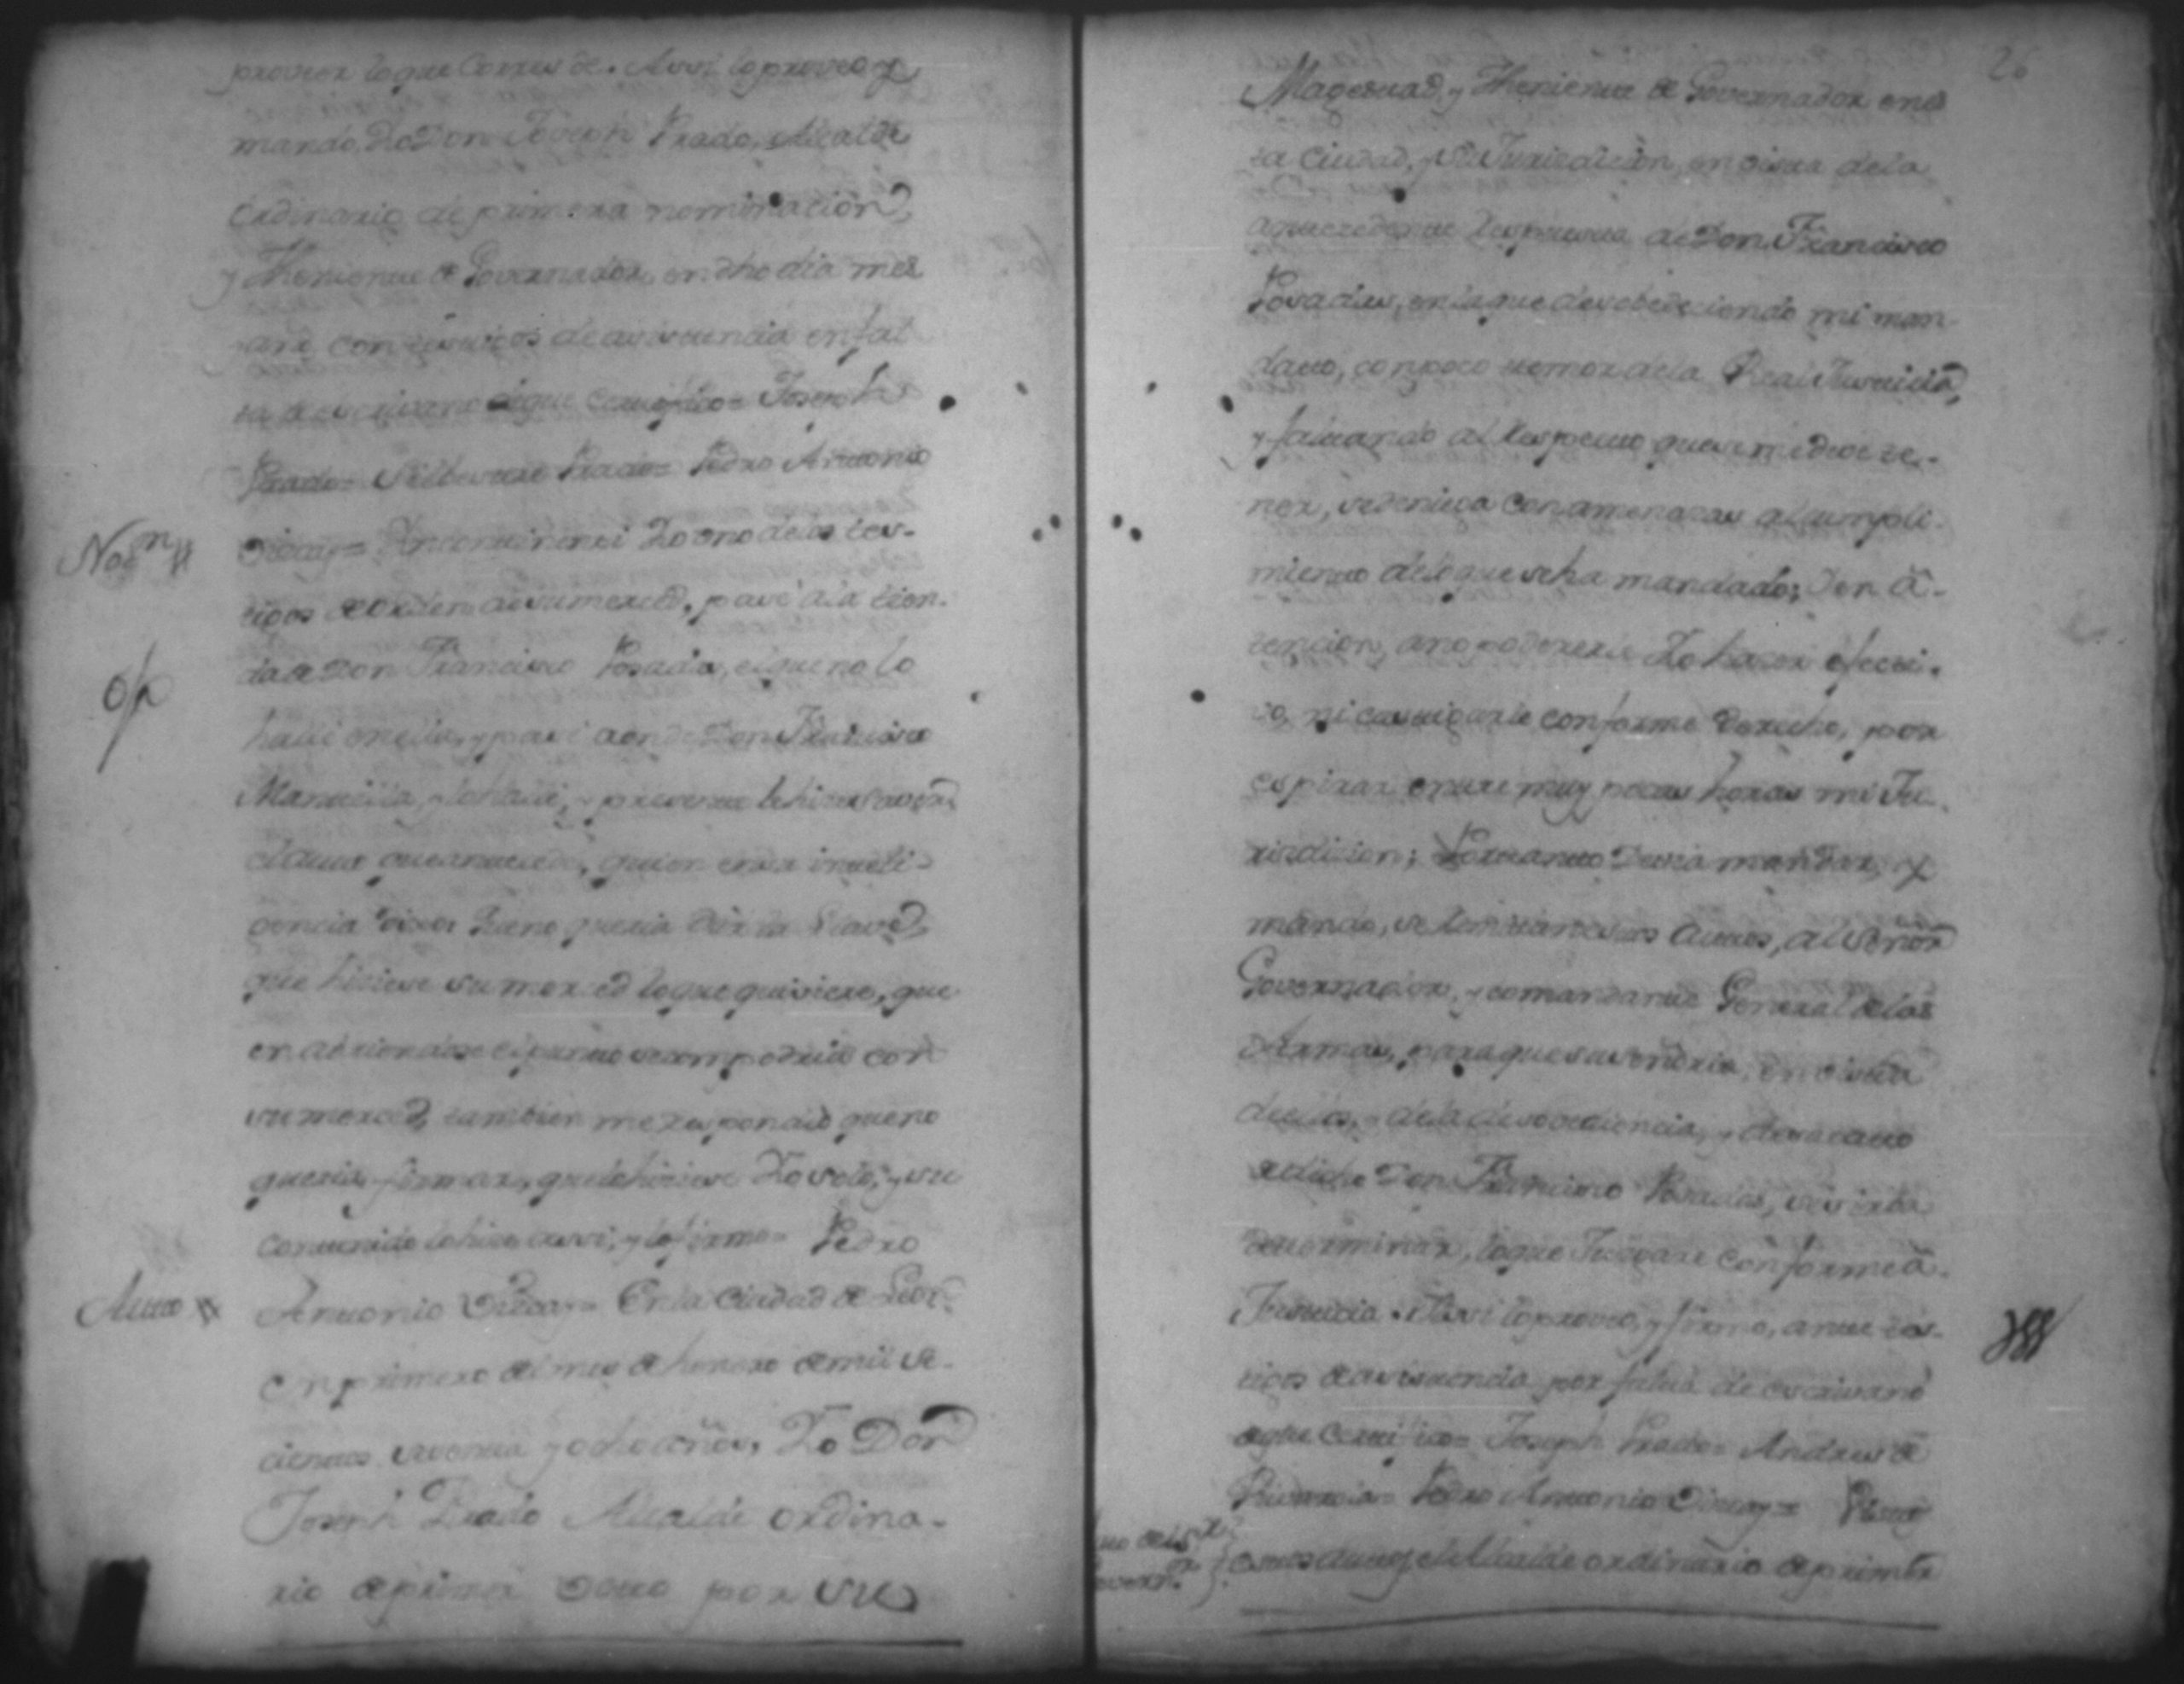 proveer loque Corres de. Assi lo proveo, y
mando, Yo Don Joseph Prado, Alcalde
Ordinario de primera nominacion,
y Theniente de Governador, en dho dia mes
y año, con testigos de assistencia en fal
ta de escrivano de que Certifico= Joseph
Prado= Silbestre Prado= Pedro Antonio
Nosn #
Yo uno de los tes-
tigos de orden de su merced, pasé a la tien-
da de Don Francisco Posadas, el que no lo
hallé en ella, y pasé a onde Don Francisco
Mansilla, y lo hallé, y presente le hize saver,
el auto que antecede, quien en su inteli-
gencia dixo: Que no queria dar la Llave,
que hiciese su merced lo que quisiere, que
en abriendose el puerto se compondria con
su merced, tambien me respondio que no
queria firmar, que lo hiciese Yo solo, y su
contenido lo hize assi, y lo firmo= Pedro
Auto #
Antonio = En la Ciudad de
en primero del mes de henero de mil se-
cientos setenta y ocho años, Yo Don
Joseph Prado Alcalde ordina-
rio de primer voto por su
26
Magestad, y Theniente de Governador en es
ta Ciudad, y su Jurisdicion, en vista de la
respuesta de Don Francisco
Posadas, en la que desobedeciendo mi man-
dato, con poco temor de la Real Justicia,
y faltando al Respecto que se me deve te-
ner, se deniega con amenazas al cumpli-
miento de lo que se ha mandado; Y en a-
tencion, a no poderselo Yo hacer efecti-
vo, ni castigarle conforme Derecho, por
espirar entre muy pocas horas mi Ju-
risdicion; Portanto Devia mandar, y
mando, se Remitan estos Autos, al Señor
Governador, y comandante General de las
Armas, para que su Señoria, en vista
de ellos, y de la desovediencia, y desacato
de dicho Don Francisco Posadas, se sirba
determinar, lo que Juzgare conforme â
Justicia. Assi lo proveo, y firmo, ante tes-
tigos de assistencia por falta de escrivano
de que Certifico= Joseph Prado= Andres de
= Pedro Antonio = Vistos
estos autos, el Alcalde ordinario de primer